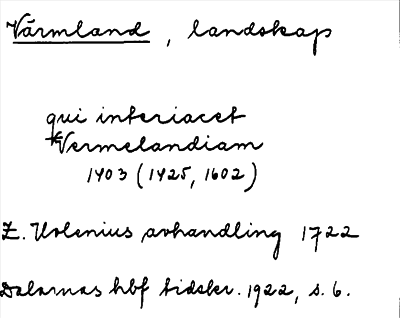 Värmland, landskap
qui interiacet
Vermelandiam
1403 (1425, 1602)
Z. Holenius avhandling 1722
Dalarnas hbf tidskr. 1922, s. 6.